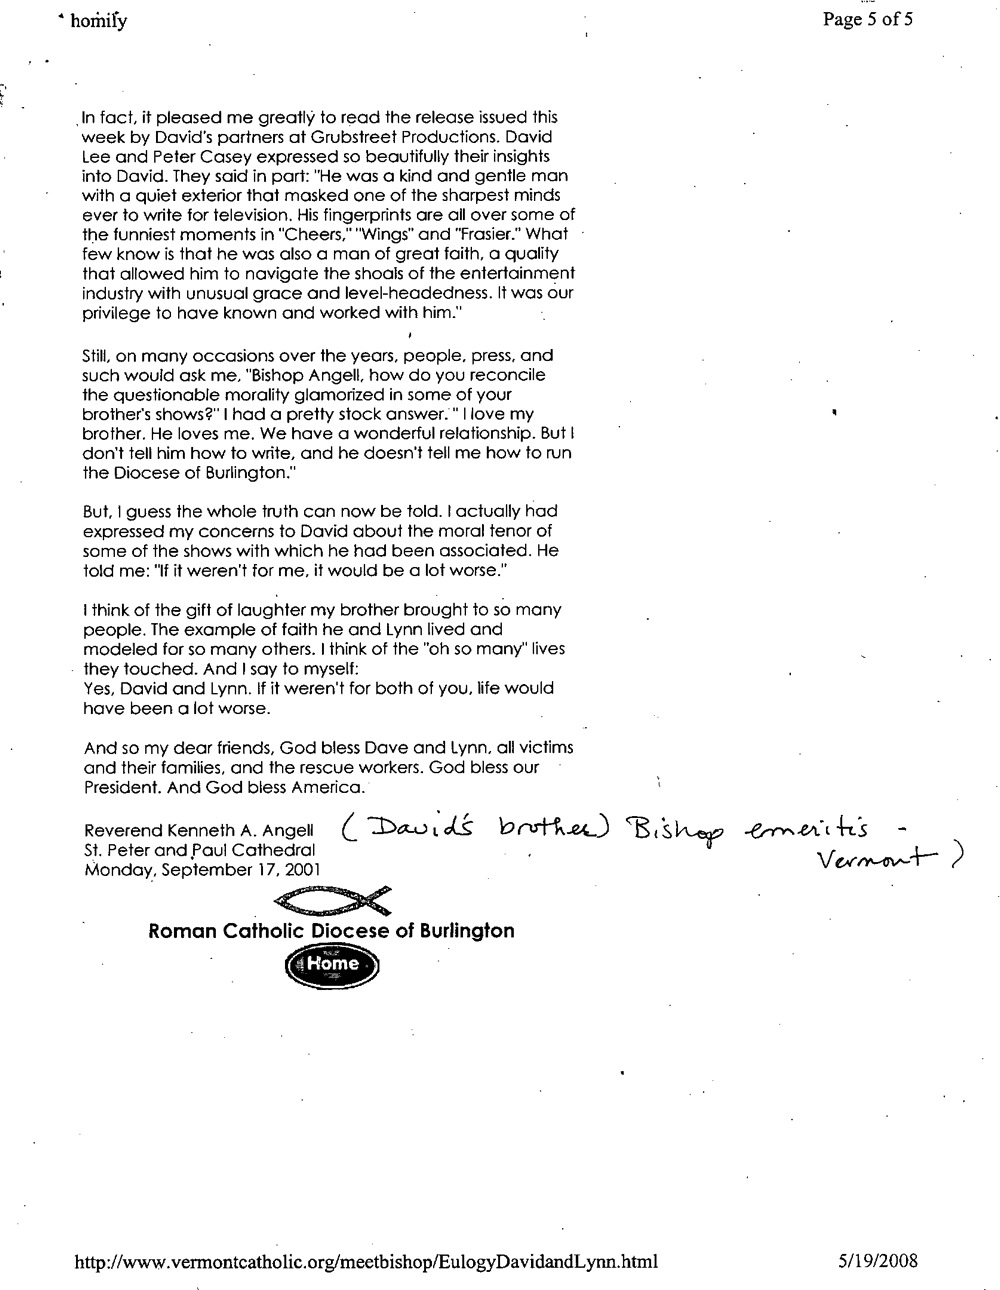 homily
Page 5 of 5
In fact, it pleased me greatly to read the release issued this
week by David's partners at Grubstreet Productions. David
Lee and Peter Casey expressed so beautifully their insights
into David. They said in part: "He was a kind and gentle man
with a quiet exterior that masked one of the sharpest minds
ever to write for television. His fingerprints are all over some of
the funniest moments in "Cheers," "Wings" and "Frasier." What
few know is that he was also a man of great faith, a quality
that allowed him to navigate the shoals of the entertainment
industry with unusual grace and level-headedness. It was our
privilege to have known and worked with him."
Still, on many occasions over the years, people, press, and
such would ask me, "Bishop Angell, how do you reconcile
the questionable morality glamorized in some of your
brother's shows?" I had a pretty stock answer. " I love my
brother. He loves me. We have a wonderful relationship. But I
don't tell him how to write, and he doesn't tell me how to run
the Diocese of Burlington."
But, I guess the whole truth can now be told. I actually had
expressed my concerns to David about the moral tenor of
some of the shows with which he had been associated. He
told me: "If it weren't for me, it would be a lot worse."
I think of the gift of laughter my brother brought to so many
people. The example of faith he and Lynn lived and
modeled for so many others. I think of the "oh so many" lives
they touched. And I say to myself:
Yes, David and Lynn. If it weren't for both of you, life would
have been a lot worse.
And so my dear friends, God bless Dave and Lynn, all victims
and their families, and the rescue workers. God bless our
President. And God bless America.
Reverend Kenneth A. Angell (David's brother) Bishop emeritis -
St. Peter and Paul Cathedral Vermont)
Monday, September 17, 2001
Roman Catholic Diocese of Burlington
Home
http://www.vermontcatholic.org/meetbishop/EulogyDavidandLynn.html
5/19/2008